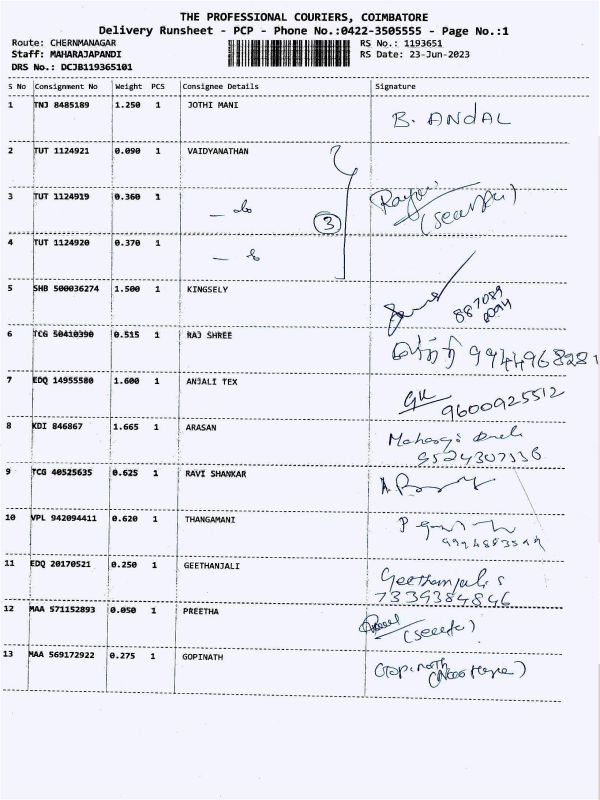 THE PROFESSIONAL COURIERS, COIMBATORE
Delivery Runsheet - PCP - Phone No.:0422-3505555 - Page No.:1
Route: CHERNMANAGAR RS No.: 1193651
Staff: MAHARAJAPANDI RS Date: 23-Jun-2023
DRS No.: DCJB119365101
S No Consignment No Weight PCS Consignee Details Signature
1 TNJ 8485189 1.250 1 JOTHI MANI B. ANDAL
2 TUT 1124921 0.090 1 VAIDYANATHAN
3 TUT 1124919 0.360 1 - do 3
4 TUT 1124920 0.370 1
5 SHB 500036274 1.500 1 KINGSELY
6 TCG 50410390 0.515 1 RAJ SHREE 9944968281
7 EDQ 14955580 1.600 1 ANJALI TEX GK
9600925512
8 KDI 846867 1.665 1 ARASAN
9524307336
9 TCG 40525635 0.625 1 RAVI SHANKAR
10 VPL 942094411 0.620 1 THANGAMANI
11 EDQ 20170521 0.250 1 GEETHANJALI Geethanjali S
7339384846
12 MAA 571152893 0.050 1 PREETHA
13 MAA 569172922 0.275 1 GOPINATH Gopinath